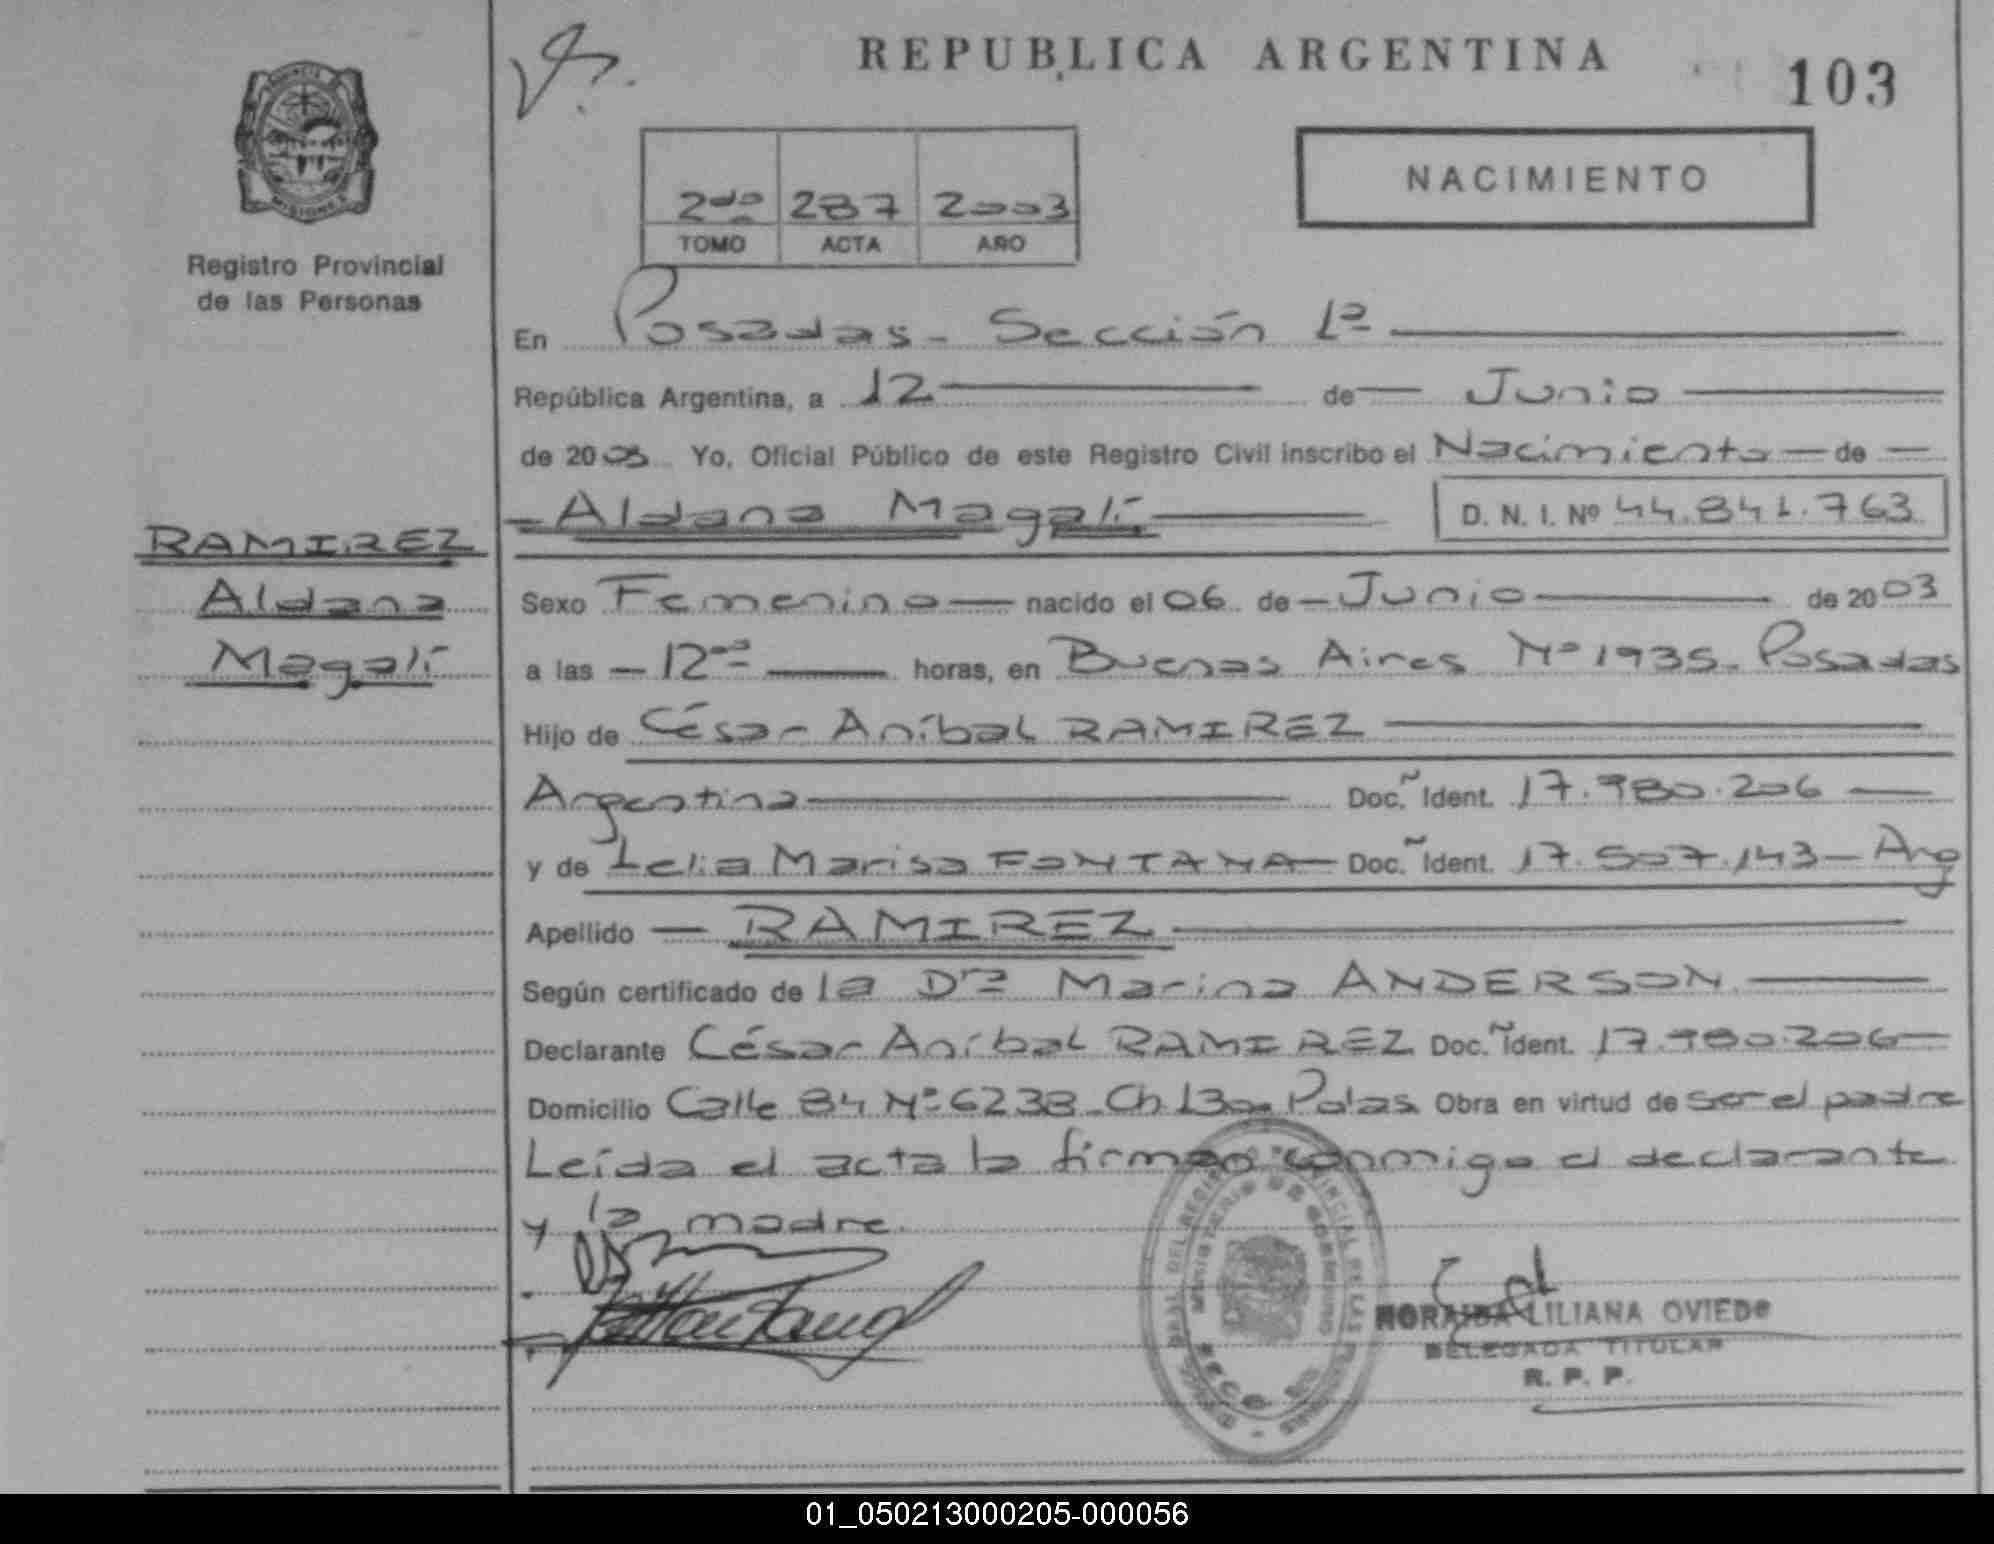 REPUBLICA ARGENTINA
103
NACIMIENTO
2do 287 2003
TOMO ACTA AÑO
MISIONES
Registro Provincial
de las Personas
En Posadas - Sección 1ª
República Argentina, a 12 de Junio
de 2003 Yo, Oficial Público de este Registro Civil inscribo el Nacimiento de
Aldana Magalí D. N. I. Nº 44.841.763
RAMIREZ
Aldana
Magalí
Sexo Femenino nacido el 06 de Junio de 2003
a las 12 horas, en Buenas Aires Nº 1935. Posadas
Hijo de César Aníbal RAMIREZ
Argentina Doc. Ident. 17.980.206
y de Lelia Marisa FONTANA Doc. Ident. 17.507.143 - Arg
Apellido RAMIREZ
Según certificado de la Dra Marina ANDERSON
Declarante César Aníbal RAMIREZ Doc. Ident. 17.980.206
Domicilio Calle 84 Nº 6238 - Ch 130 Pdas Obra en virtud de ser el padre
Leída el acta la firman conmigo el declarante
y la madre.
LILIANA OVIEDO
DELEGADA TITULAR
R. P. P.
01_050213000205-000056